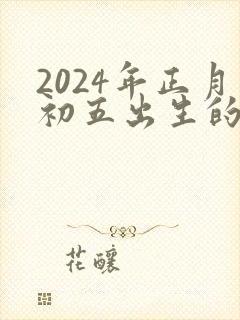 2024年正月
初五出生的
花釀